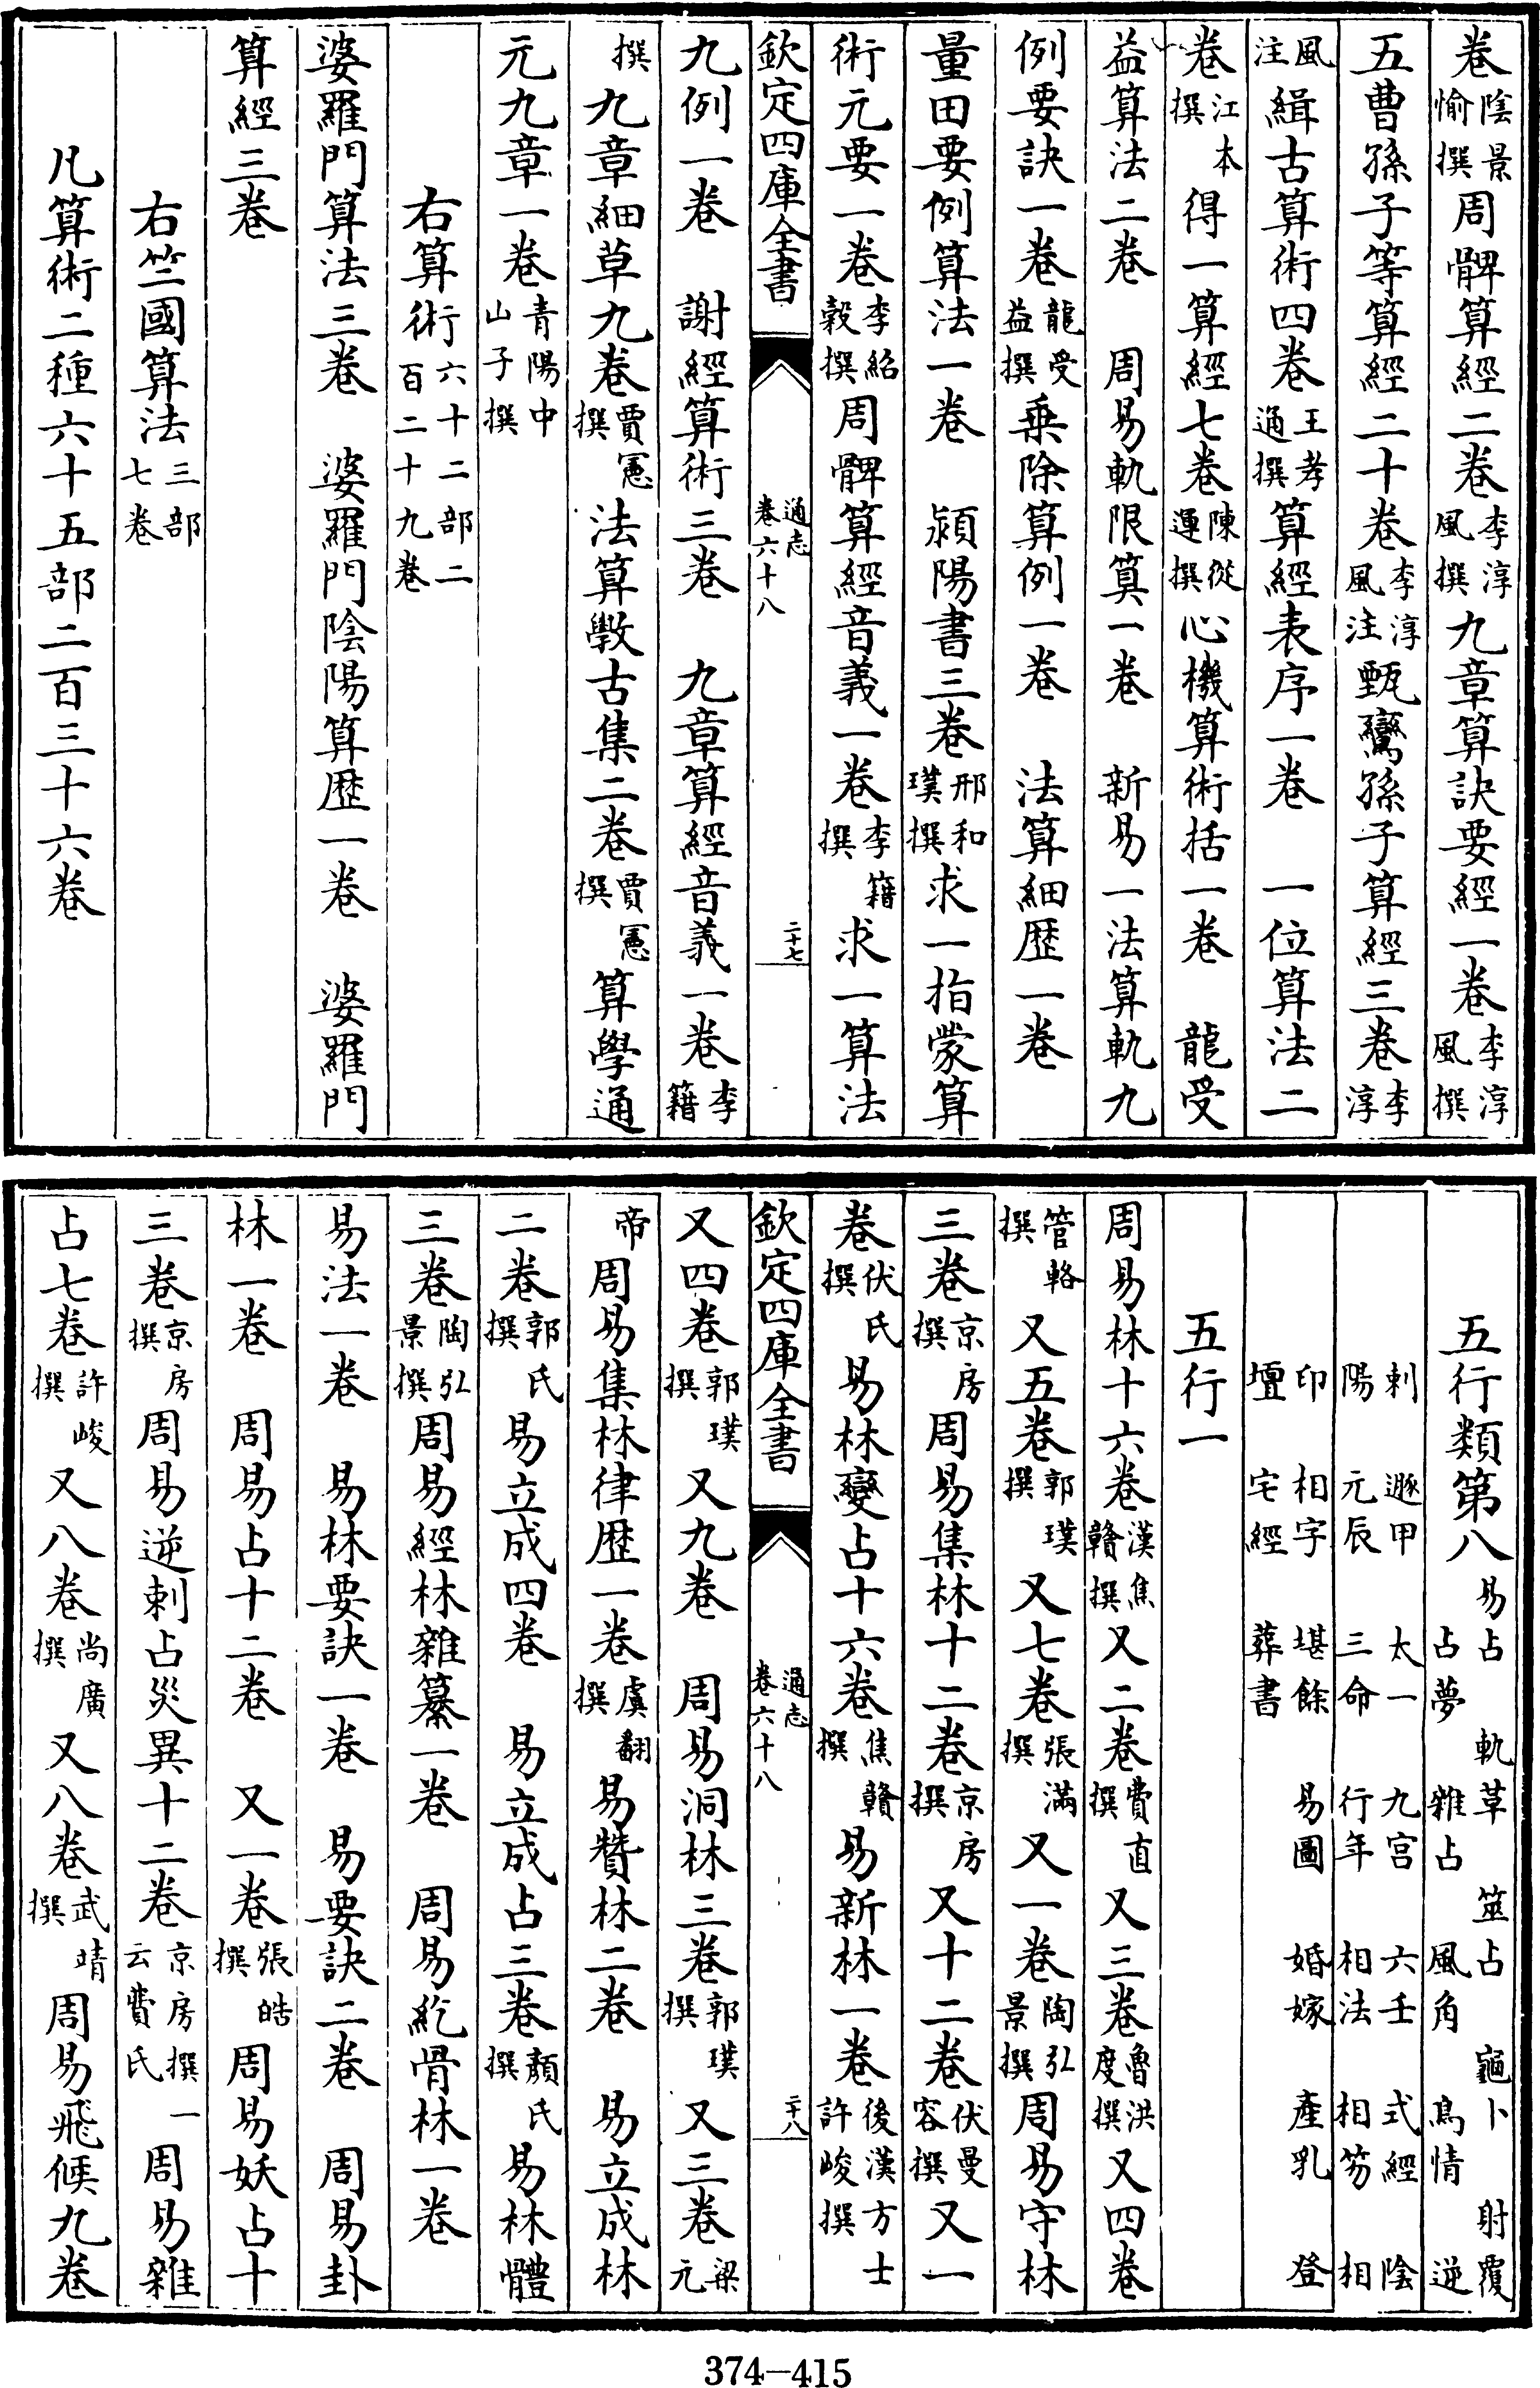 卷陰景愉撰周髀算經二卷李淳風撰九章算訣要經一卷李淳風撰
五曹孫子等算經二十卷李淳風注甄鸞孫子算經三卷李淳
風注緝古算術四卷王孝通撰算經表序一卷 一位算法二
卷江本撰得一算經七卷陳從運撰心機算術括一卷 龍受
益算法二卷 周易軌限算一卷 新易一法算軌九
例要訣一卷龍受益撰乗除算例一卷 法算細歴一卷
量田要例算法一卷 潁陽書三卷邢和璞撰求一指蒙算
術元要一卷李紹穀撰周髀算經音義一卷李籍撰求一算法
欽定四庫全書 通志卷六十八 二十七
九例一卷 謝經算術三卷 九章算經音義一卷李籍
撰九章細草九卷賈憲撰法算斆古集二卷賈憲撰算學通
元九章一卷青陽中山子撰
右算術六十二部二百二十九卷
婆羅門算法三卷 婆羅門陰陽算歴一卷 婆羅門
算經三卷
右竺國算法三部七卷
凡算術二種六十五部二百三十六卷
五行類第八易占 軌革 筮占 龜卜 射覆 占夢 雜占 風角 鳥情 逆
刺 遯甲 太一 九宫 六壬 式經 陰陽 元辰 三命 行年 相法 相笏 相
印 相字 堪餘 易圖 婚嫁 產乳 登壇 宅經 葬書
五行一
周易林十六卷漢焦贛撰又二卷費直撰又三卷魯洪度撰又四卷
管輅撰又五卷郭璞撰又七卷張滿撰又一卷陶弘景撰周易守林
三卷京房撰周易集林十二卷京房撰又十二卷伏曼容撰又一
卷伏氏撰易林變占十六卷焦贛撰易新林一卷後漢方士許峻撰
欽定四庫全書 通志卷六十八 二十八
又四卷郭璞撰又九卷 周易洞林三卷郭璞撰又三卷梁元
帝周易集林律歴一卷虞翻撰易贊林二卷 易立成林
二卷郭氏撰易立成四卷 易立成占三卷顏氏撰易林體
三卷陶弘景撰周易經林雜纂一卷 周易紇骨林一卷
易法一卷 易林要訣一卷 易要訣二卷 周易卦
林一卷 周易占十二卷 又一卷張皓撰周易妖占十
三卷京房撰周易逆刺占災異十二卷京房撰一云費氏周易雜
占七卷許峻撰又八卷尚廣撰又八卷武靖撰周易飛候九卷
374-415